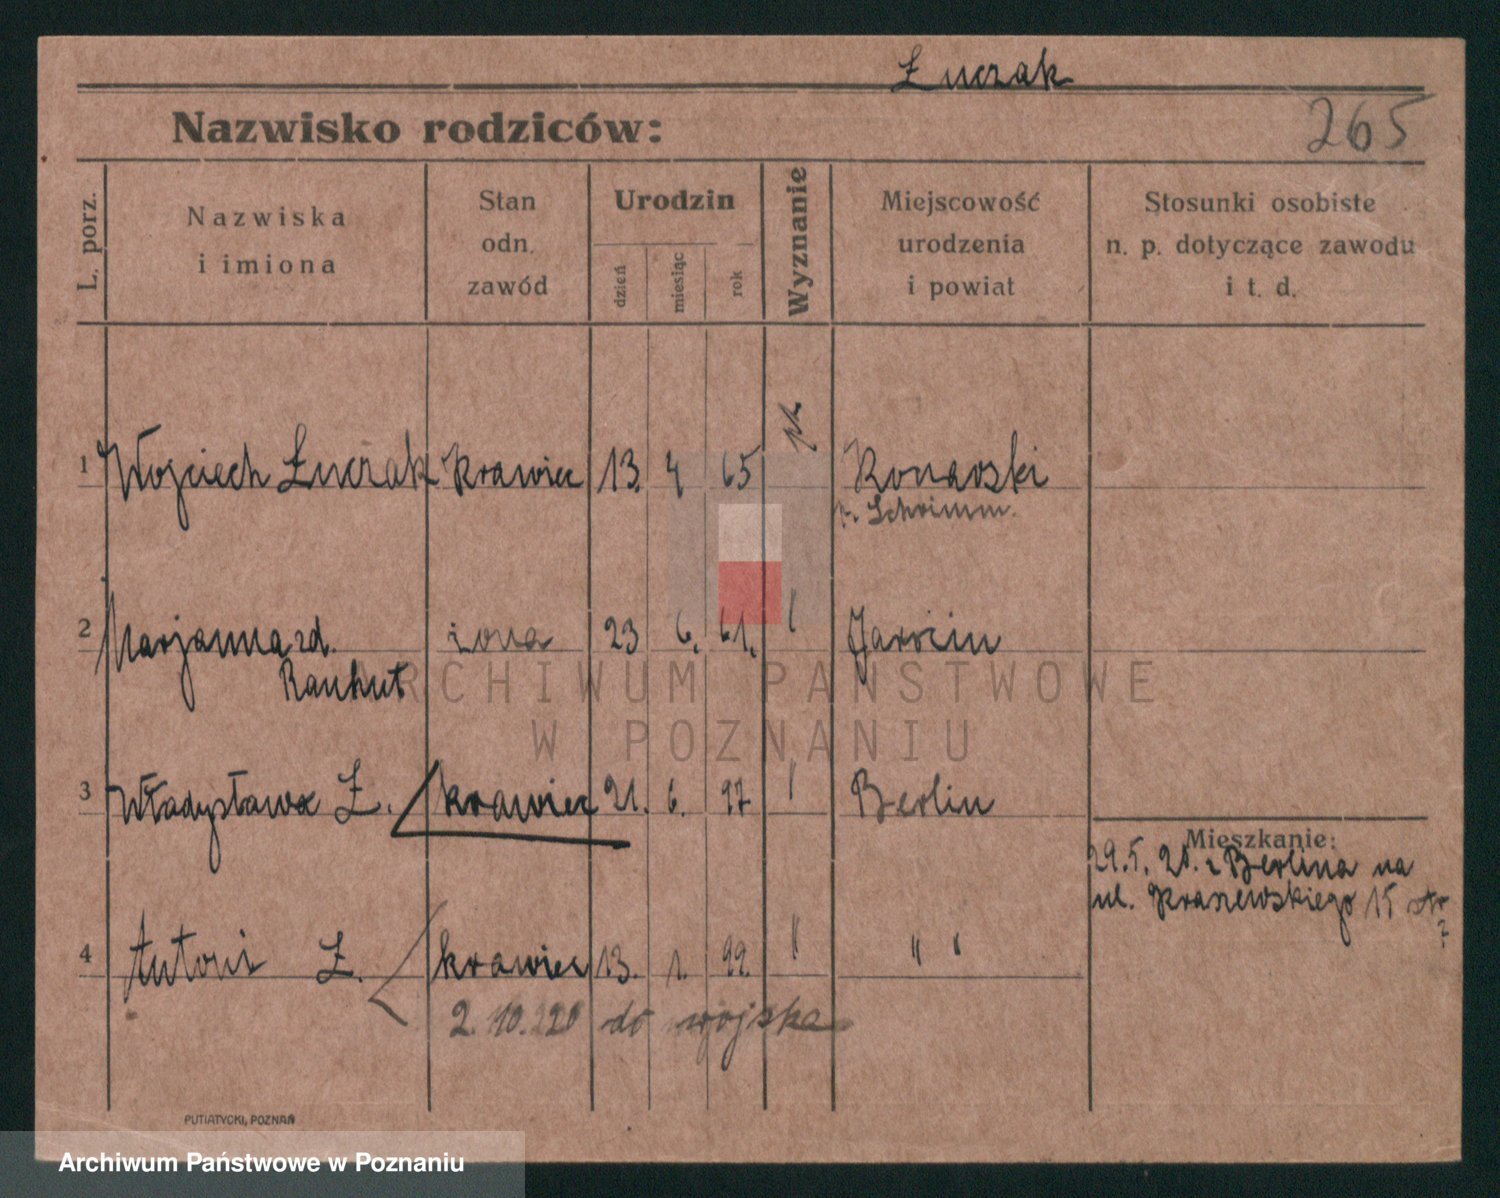 Łuczak
Nazwisko rodziców:
265
L. porz.
Nazwiska
i imiona
Stan
odn.
zawód
Urodzin
dzień
miesiąc
rok
Wyznanie
Miejscowość
urodzenia
i powiat
Stosunki osobiste
n. p. dotyczące zawodu
i t. d.
1 Wojciech Łuczak krawiec 13. 4 65 Konarski
Schrimm.
2 Marjanna zd. żona 23 6. 61. Jarocin
Rauhut
3 Władysława Ł. krawiec 21. 6. 97 Berlin
Mieszkanie:
29.5. 20. z Berlina na
ul. Kraszewskiego 15
4 Antoni Ł. krawiec 13. 1. 99. " "
2.10. do wojska
PUTIATYCKI, POZNAŃ
ARCHIWUM PAŃSTWOWE
W POZNANIU
Archiwum Państwowe w Poznaniu